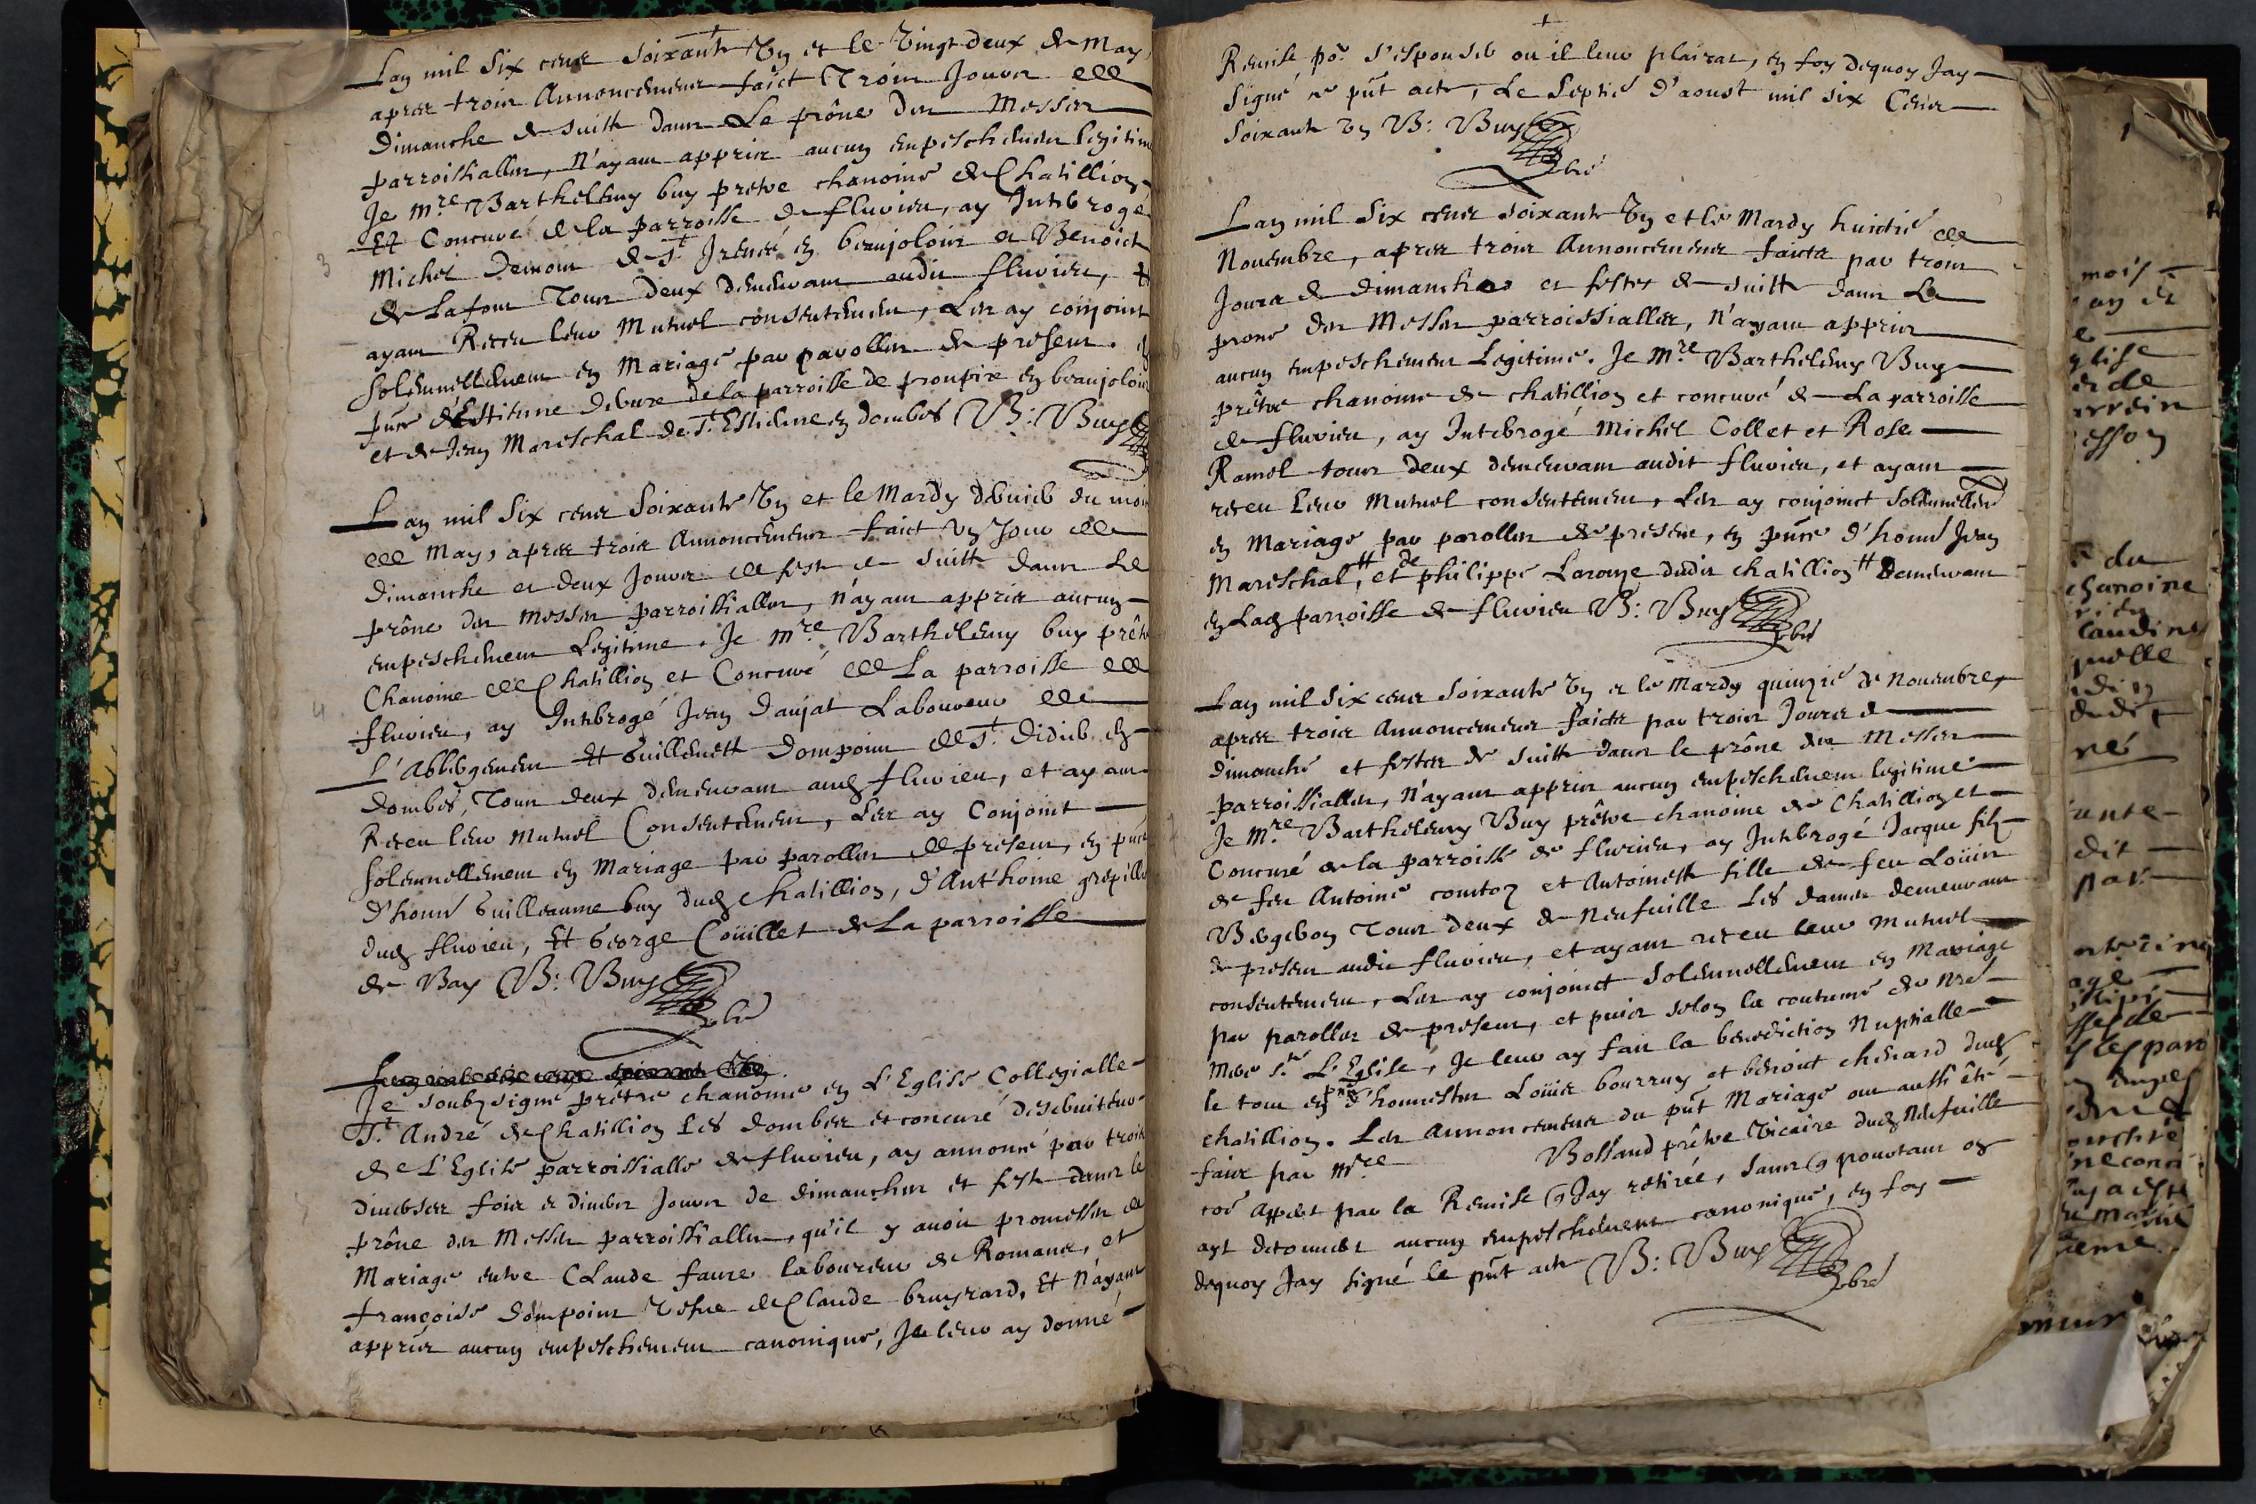 Lan mil six cens soixante Un et le Vingt deux de May,
apres trois Annoncemens faict Trois Jours de
dimanche de suitte dans Le prône des Messes
parroissialles, N'ayant appris aucun empeschement legitime
Je m.re Barthelemy buy pretre chanoine de Chatillion
Et Concuré de la parroisse de fluvieu, ay Interogé
3
Michel Demont de S.t Irenée en beaujolois et Benoict
de Lafont Tous deux demeurant audit fluvieu, et
ayant Receu leur Mutuel consentement, Les ay conjoint
solemnellement en Mariage par parolles de present. en
pñce d'Estienne de la parroisse de en beaujolois
et de Jean Mareschal de S.t Estienne en dombes B: Buy
Lan mil six cens soixante Un et le Mardy dernier du mois
de May, apres trois Annoncemens faict Un Jour de
dimanche et deux Jours de feste de suitte dans Le
prône des messes parroissialles, N'ayant appris aucun
empeschement Legitime. Je m.re Barthelemy buy prêtre
Chanoine de Chatillion et Concuré de La parroisse de
4
fluvieu, ay Interogé Jean Daujat Laboureur de
L'Abbergement Et Guillemette Dompoint de S.t Didier en
dombes, Tous deux demeurant aud. fluvieu, et ayant
Receu leur Mutuel Consentement, Les ay Conjoint
solemnellement en Mariage par parolles de present, en pñce
D'hon. Guilleaume buy dud. Chatillion, d'Anthoine
dud. fluvieu, Et George Coüillet de La parroisse
de Bay B: Buy
pbre
Lan mil six cens soixante Un
Je soubsigné prêtre chanoine en L'Eglise Collegialle
S.t André de Chatillion Les dombes et concuré deserviteur
de L'Eglise parroissialle de fluvieu, ay annoncé par trois
diverses fois et divers Jours de dimanches et feste dans le
prône des Messes parroissialles, qu'il y avoit promesses de
Mariage entre Claude faure laboureur de Romans, et
françoise Dompoint Vefve de Claude bruyrard, Et N'ayant
appris aucun empeschement canonique, Je leur ay donné
+
Remise po.r s'espouser ou il leur plairat, en foy dequoy Jay
signé ce pñt acte, Le septié d'aoust mil six Cens
soixante Un B: Buy
pbre
Lan mil six cens soixante Un et le Mardy huictié de
Novembre, apres trois Annoncemens faicts par trois
Jours de dimanches et festes de suitte dans Le
prone des Messes parroissialles, N'ayant appris
aucun empeschement Legitime. Je M.re Barthelemy Buy
prêtre chanoine de chatillion et concuré de La parroisse
de fluvieu, ay Interogé Michel Collet et Rose
Ramel tous deux demeurant audit fluvieu, et ayant
receu Leur Mutuel consentement, Les ay conjoinct solemnellem.
en Mariage par parolles de present, en pñce d'hon. Jean
Mareschal, et de philippe Laronze dudit chatillion demeurant
en Lad. parroisse de fluvieu B: Buy
pbre
Lan mil six cens soixante Un et le Mardy quinzié de Novembre,
apres trois Annoncemens faicts par trois Jours de
dimanche et festes de suitte dans le prône des Messes
parroissialles, N'ayant appris aucun empeschement legitime
Je M.re Barthelemy Buy prêtre chanoine de Chatillion et
Concuré de la parroisse de fluvieu, ay Interogé Jacque filz
de feu Antoine et Antoinette fille de feu Loüis
Tous deux de Neufville Les dames demeurant
de present audit fluvieu, et ayant receu leur Mutuel
consentement, Les ay conjoinct solemnellement en Mariage
par parolles de present, et puis selon la coutume de nre
Mere S.te L'Eglise, Je leur ay fait la benediction Nuptialle
le tout en pñce d'honnestes Loüis bourruy et benoict chenard dud.
chatillion. Les Annoncemens du pñt Mariage ont aussi été
faits par M.re Bolland prêtre Vicaire dud. Neufville
par la Remise q. Jay retirée, sans q. pourtant on
ayt decouvert aucun empeschement canonique, en foy
dequoy Jay signé le pñt acte B: Buy
pbre
mois
an et
glise
et de
esson
du
chanoine
quelle
dudit
né
dit
par